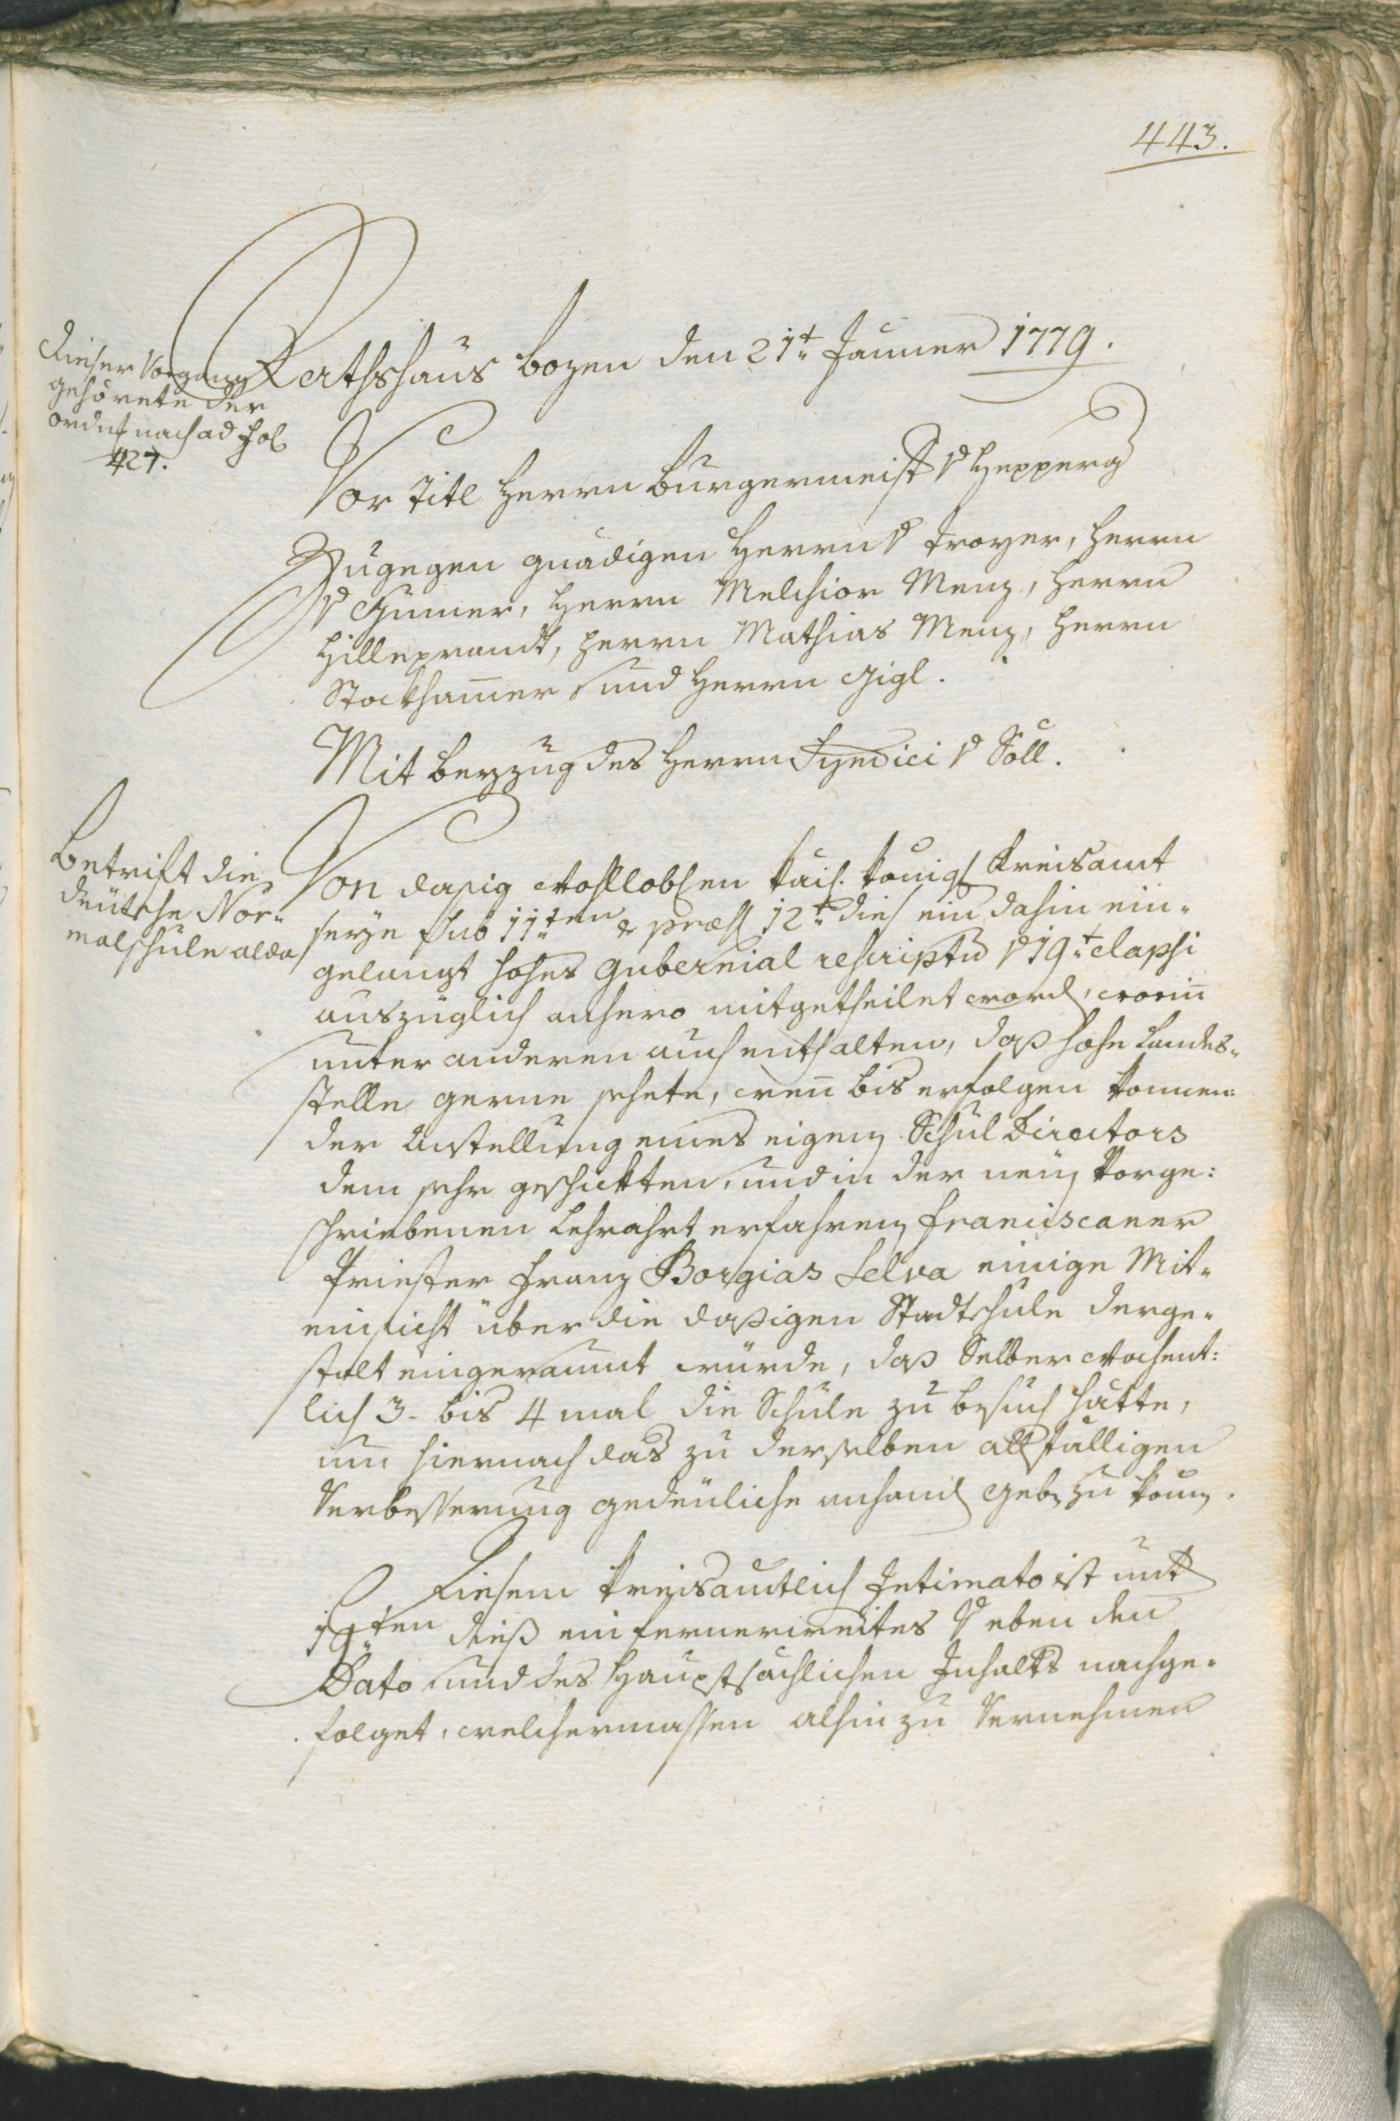 443.
Dieser Vorgang
gehörete der
ordnḡ nach ad Fol
427.
Rathshaus Bozen den 21t Jenner 1779.
Vor Titl Herrn Burgermeister v Hepperg
Zugegen gnädigen Herrn v Troyer, Herrn
v Gumer, Herrn Melchior Menz, Herrn
Hilleprandt, Herrn Mathias Menz, Herrn
Stockham̄er und Herrn Gigl.
Mit Beyzug des Herrn Syndici v Söll.
Betrift die
deütsche Nor-
malschule alda
Von dasig wohlloblen kais. königl Kreisamt
seye sub 11ten & præs 12t dies ein dahin ein-
gelangt hohes Gubernial rescriptum v 19t elapsi
auszüglich anhero mitgetheilet word, worin̄
unter anderen auch enthalten, daß hohe Landes-
stelle gerne sehete, wen̄ bis erfolgen konnen-
der Anstellung eines eigen Schul Directors
dem sehr geschickten, und in der neüen Vorge-
schriebenen Lehrahrt erfahrnen Franciscaner
Priester Franz Borgias Selva einige Mit-
einsicht über die dasßigen Stadtschule derge-
stalt eingeraumt würde, daß Selber wochent-
lich 3- bis 4 mal die Schule zu besuch hätte,
um hiernach das zu derselben allfälligen
Verbesserung gedeüliche anhand geben zu könen.
Diesem Kreisamtlich Intimato ist unterm
19ten dieß ein fernerweites v eben den
Dato und des Hauptsächlichen Inhalts nachge-
folget, welchermassen alhin zu Vernehmen